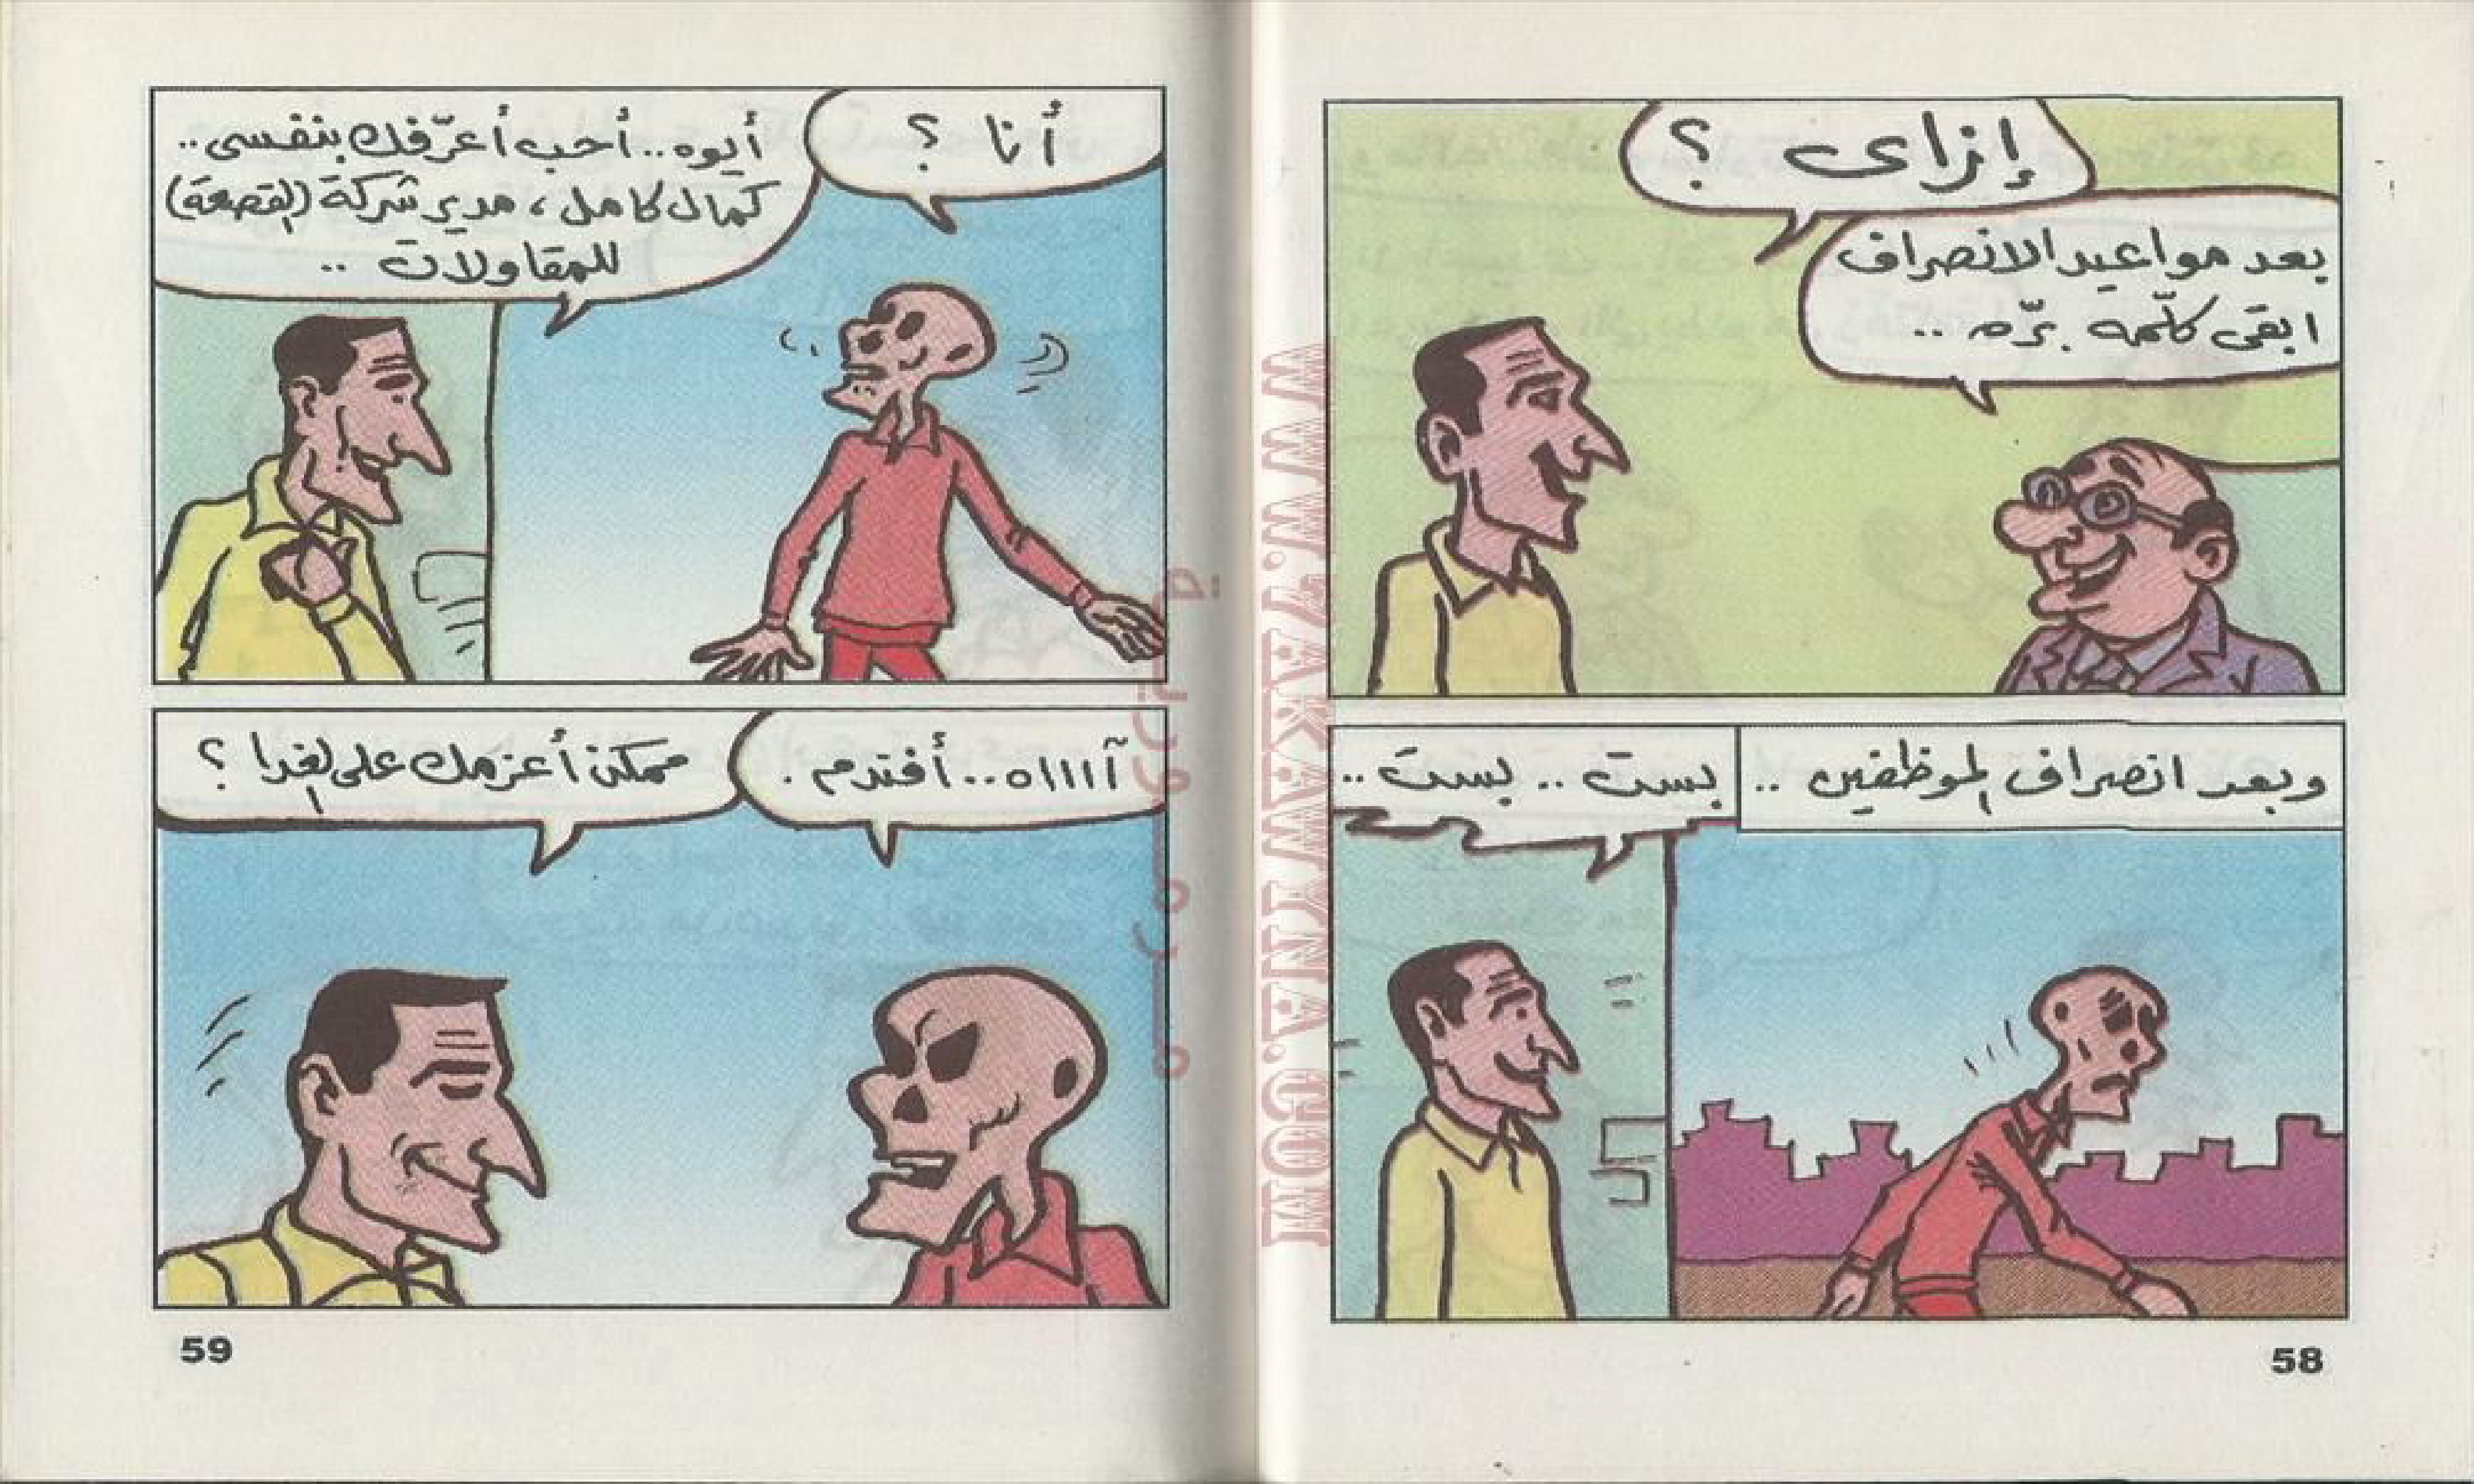 إزاى ؟
بعد مواعيد الانصراف
ابقى كلّمه برّه ..
وبعد انصراف الموظفين ..
بست .. بست ..
58
أنا ؟
أيوه .. أحب أعرّفك بنفسى ..
كمال كامل ، مدير شركة (القصعة)
للمقاولات ..
آااااه .. أفندم .
ممكن أعزمك على الغدا ؟
59
WWW.ARAKWKNA.COM